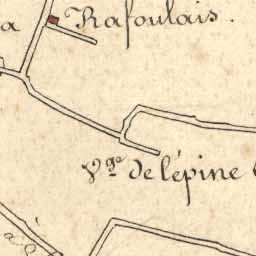 a Rafoulais.
Vge de lépine
à